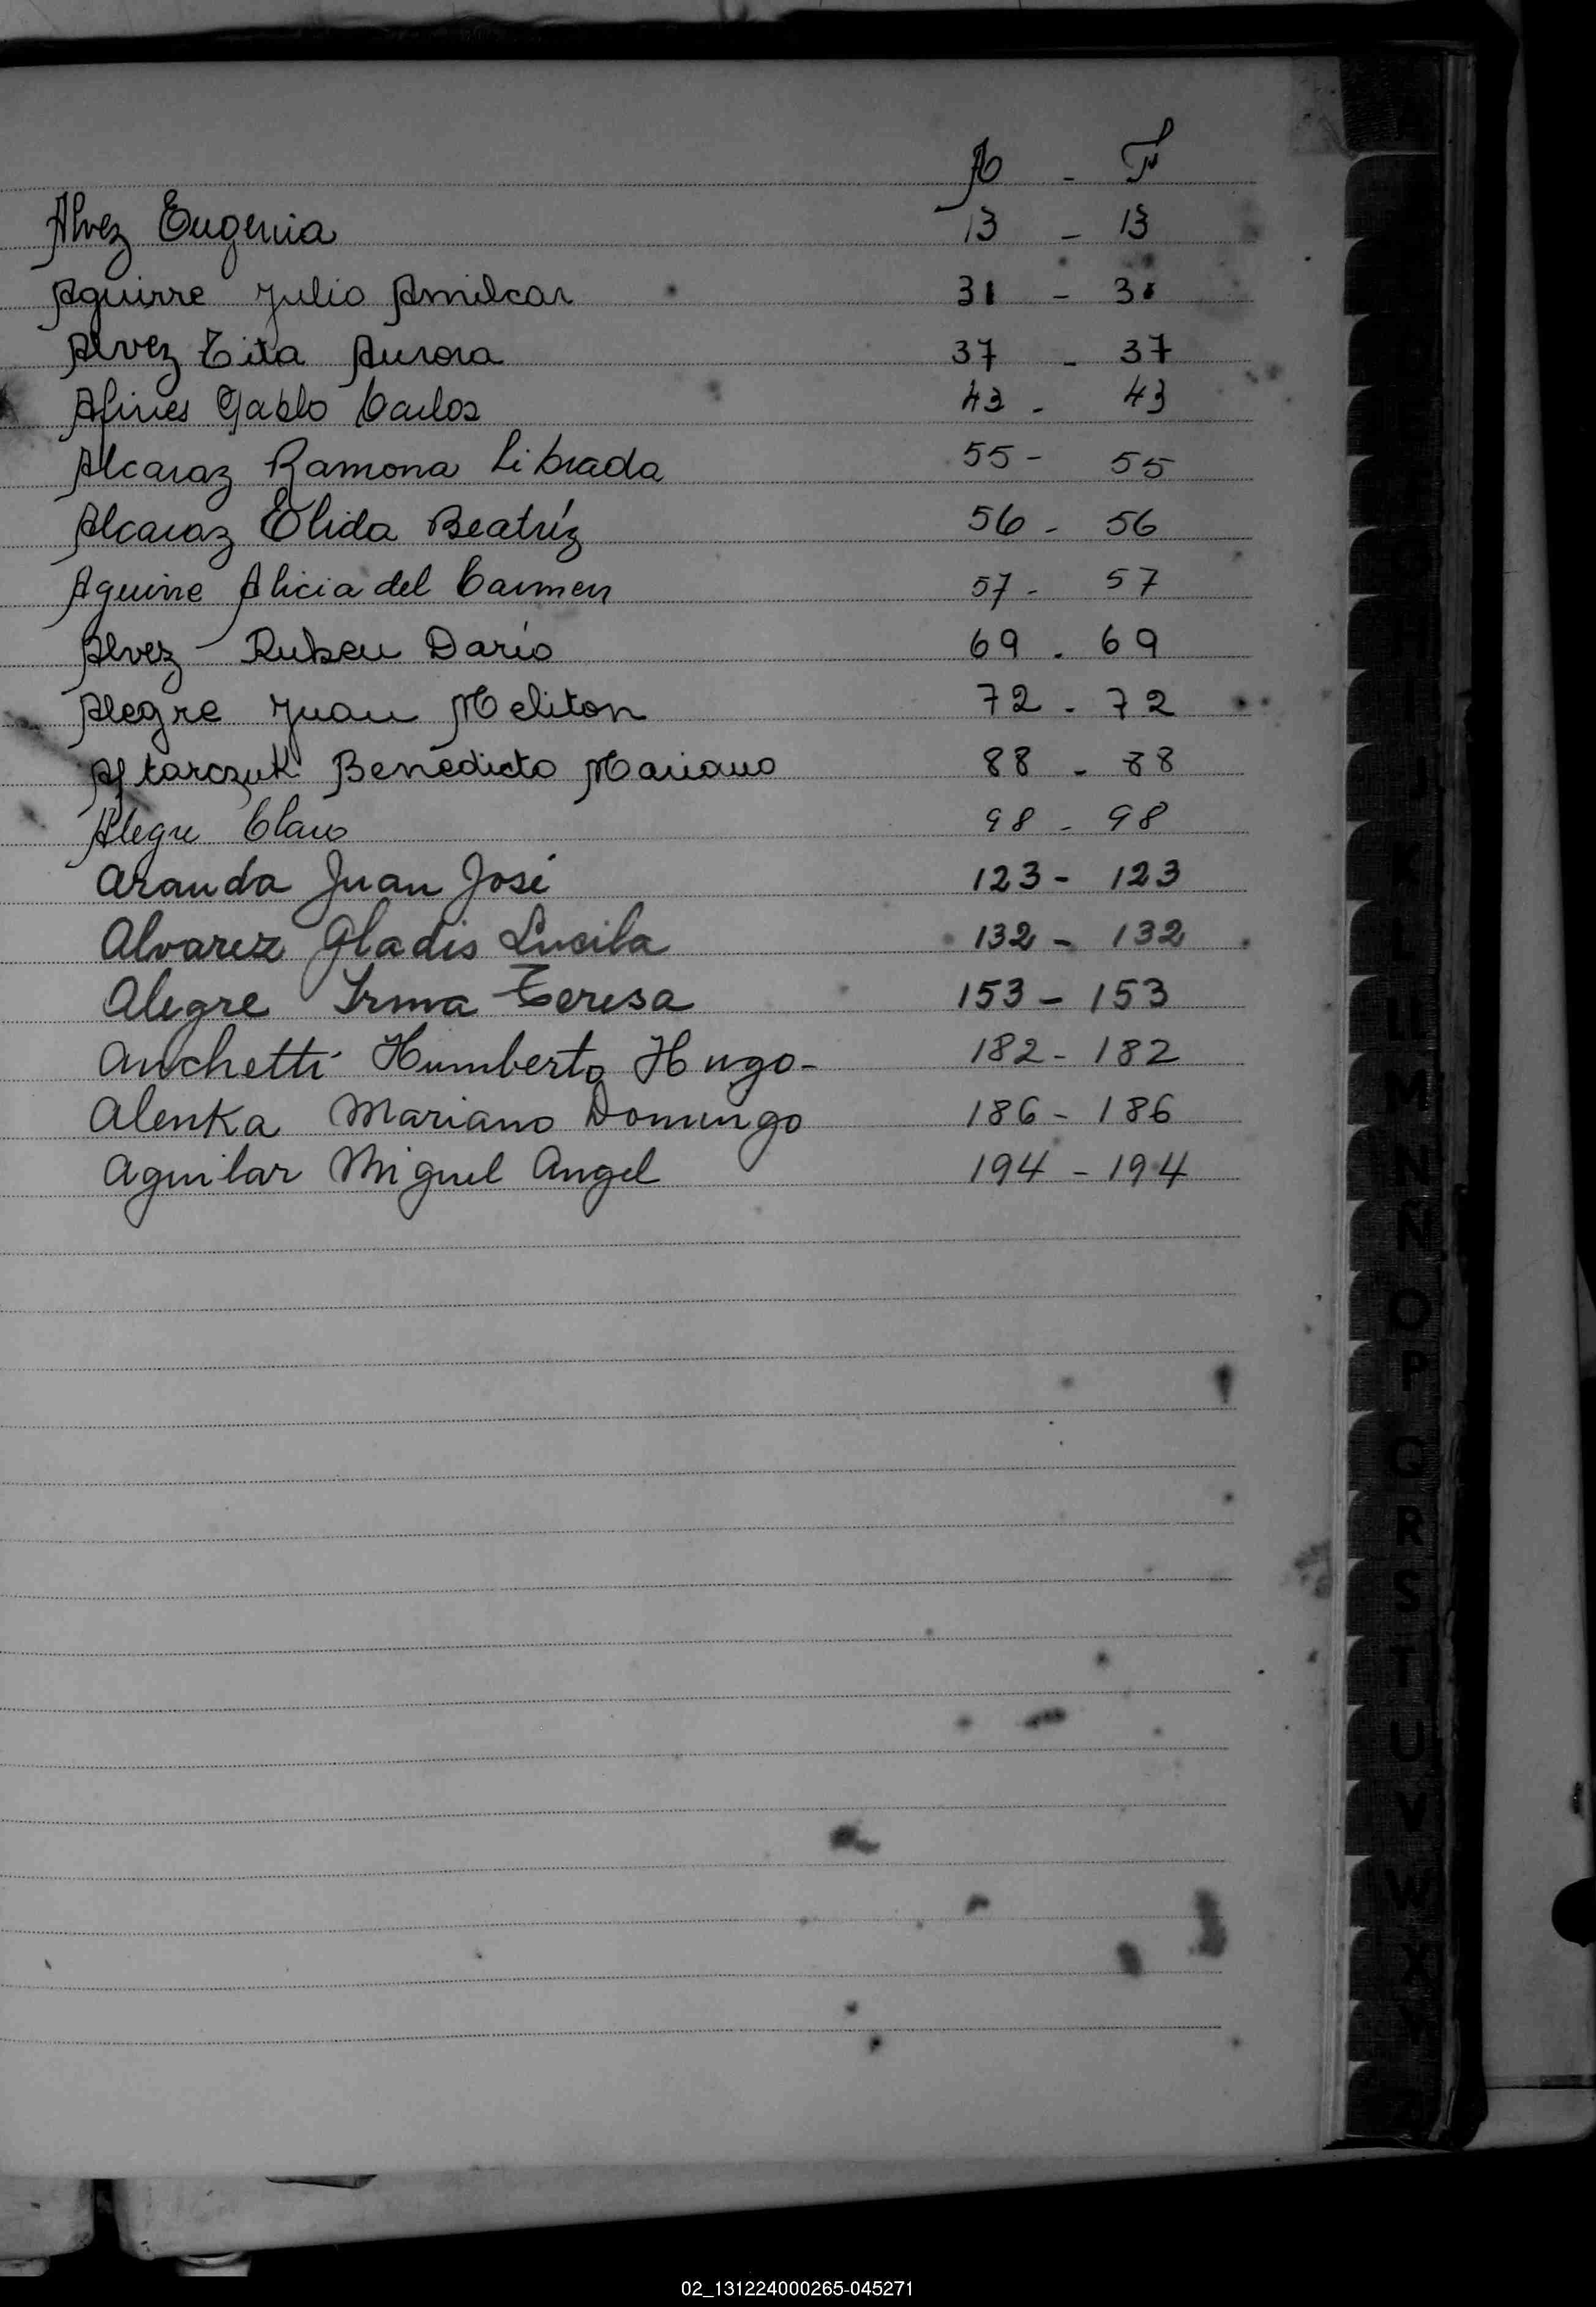 A - F
Alvez Eugenia 13 - 13
Aguirre Julio Amilcar 31 - 31
Alvez Tita Aurora 37 - 37
Afires Pablo Carlos 43 - 43
Alcaraz Ramona Librada 55 - 55
Alcaraz Elida Beatríz 56 - 56
Aguirre Alicia del Carmen 57 - 57
Alvez - Ruben Dario 69 - 69
Alegre Juan Meliton 72 - 72
Aftarczuk Benedicto Mariano 88 - 88
Alegre Claro 98 - 98
Aranda Juan José 123 - 123
Alvarez Gladis Lucila 132 - 132
Alegre Irma Teresa 153 - 153
Anchetti Humberto Hugo - 182 - 182
Alenka Mariano Domingo 186 - 186
Aguilar Miguel Angel 194 - 194
K
L
LL
M
N
Ñ
O
P
Q
R
S
T
U
V
W
X
Y
02_131224000265-045271